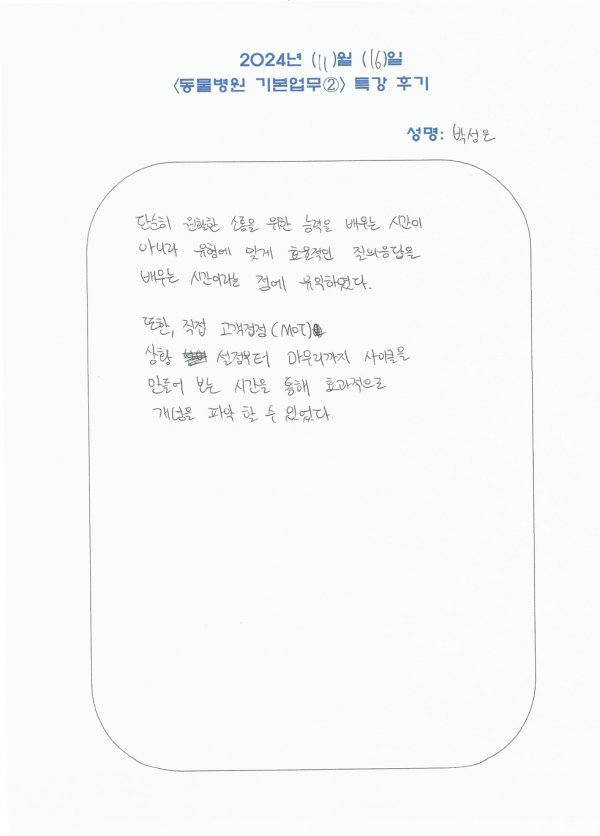 2024년 (11)월 (16)일
<동물병원 기본업무②> 특강 후기
성명: 박성은
단순히 원활한 소통을 위한 능력을 배우는 시간이
아니라 유형에 맞게 효율적인 질의응답을
배우는 시간이라는 점에 유익하였다.
또한, 직접 고객접점(MOT)
상황 설정부터 마무리까지 사이클을
만들어 보는 시간을 통해 효과적으로
개념을 파악 할 수 있었다.